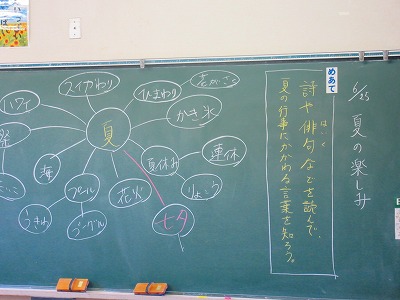 6/25 夏の楽しみ
めあて
詩や俳句などを読んで、
はいく
夏の行事にかかわる言葉を知ろう。
夏
スイカわり
ひまわり
かき氷
ハワイ
祭
海
プール
うきわ
ゴーグル
花火
夏休み
連休
りょこう
七夕